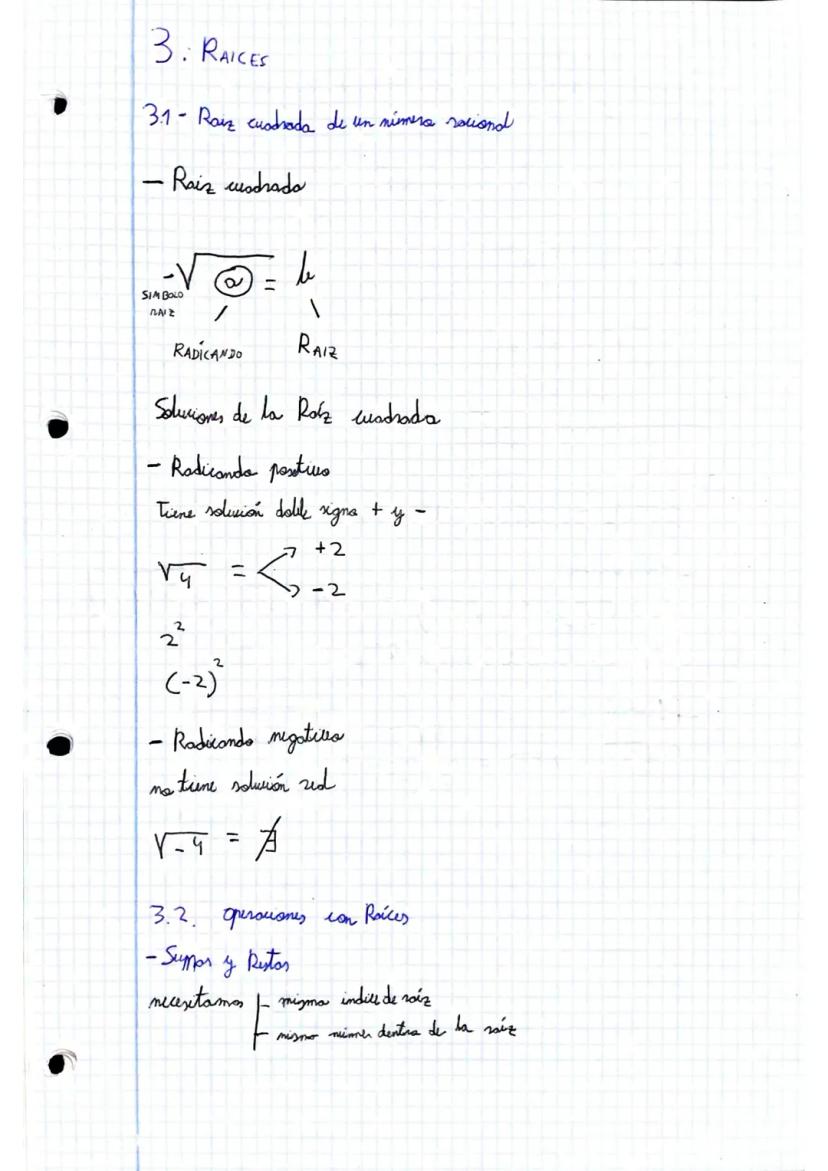 3. RAICES
3.1- Raiz cuadrada de un número racional
- Raiz cuadrada
-√a = b
SIMBOLO
RAIZ
RADÍCANDO RAIZ
Soluciones de la Raíz cuadrada
- Radicando positivo
Tiene solución doble signo + y -
+2
√4 = <
-2
2²
(-2)²
- Radicando negativo
no tiene solución real
√-4 = ∄
3.2. Operaciones con Raíces
- Sumas y Restas
necesitamos mismo indice de raíz
mismo númer dentro de la raíz